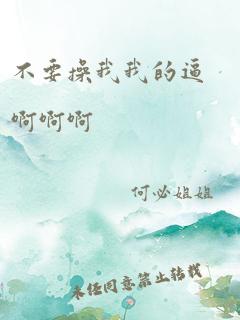 不要操我我的逼
啊啊啊
何必姐姐
未经同意禁止转载